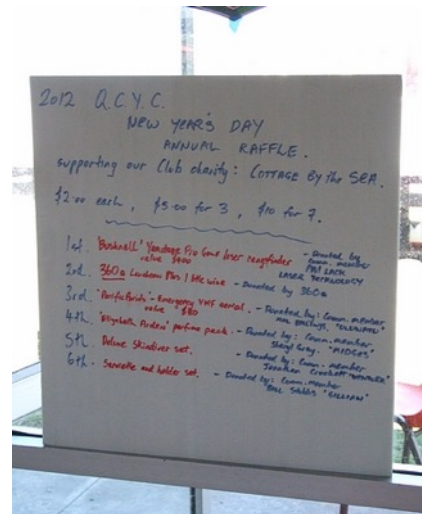 2012 Q.C.Y.C.
NEW YEAR'S DAY
ANNUAL RAFFLE.
supporting our Club charity: COTTAGE By the SEA.
$2.00 each, $5.00 for 3, $10 for 7.
1st. 'Bushnell' Yardage Pro laser rangefinder - Donated by
value $400 Comm. member
LASER TECHNOLOGY
2nd. 360Q Luncheon Plus 1 btle wine - Donated by 360Q
3rd. 'Pacific Aerials' - Emergency VHF aerial. - Donated by: Comm. member
value $80
4th. 'Elizabeth Arden' perfume pack - Donated by: Comm. member
Sheryl Gray. "MIDGES"
5th. Deluxe Skindiver set. - Donated by: Comm. member
Jonathan
6th. Serviette and holder set. - Donated by: Comm. member
Bill Stubbs "GILLIAN"